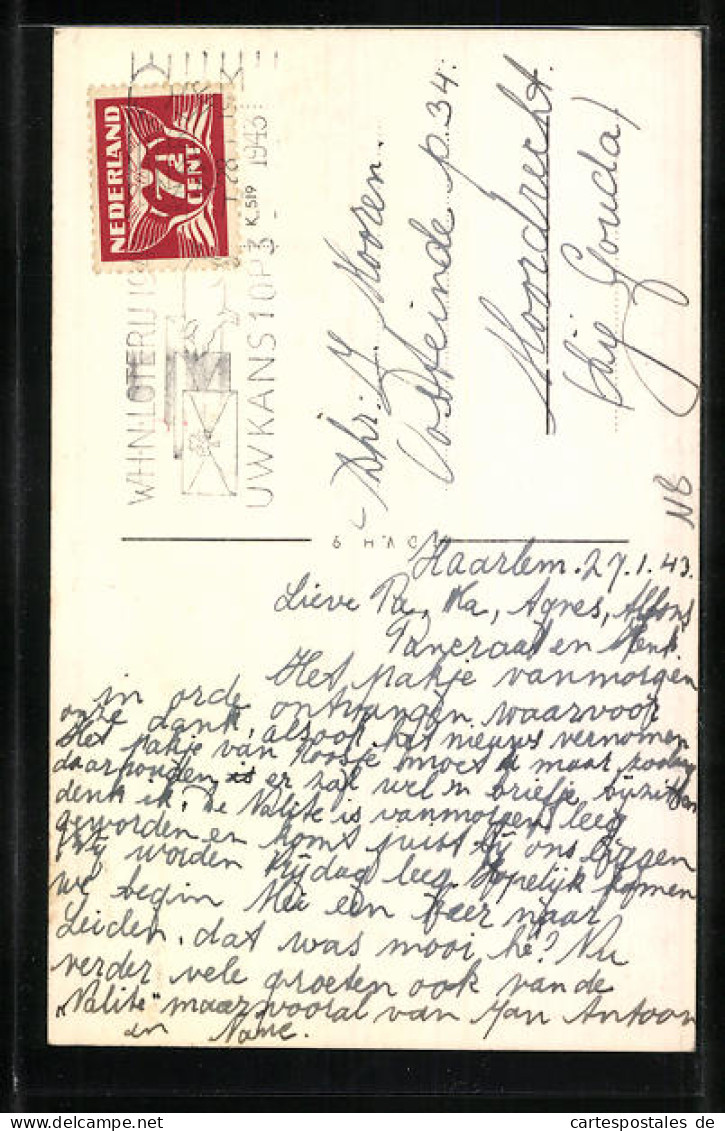 NEDERLAND
7½
CENT
28 1 1943
K.519
W.H.N. LOTERIJ
UW KANS 1 OP 3
Dhr. J. Kooren.
Oosteinde p. 34.
Moordrecht.
(bij Gouda)
NB
Haarlem. 27.1.43.
Lieve Pa, Ma, Agnes, Alfons
Pancraat en
Het pakje vanmorgen
in orde ontvangen waarvoor
onze dank, alsook het nieuws vernomen
Het pakje van Koosje moet u maar zoolang
daarhouden er zal wel 'n briefje bijzitten
denk ik. De "Nalite" is vanmorgen leeg
geworden en komt juist bij ons liggen
Wij worden Vrijdag leeg. Hopelijk komen
we begin Mei een keer naar
Leiden. dat was mooi hè? Nu
verder vele groeten ook van de
"Nalite" maar vooral van Jan Antoon
en
cartespostales.de